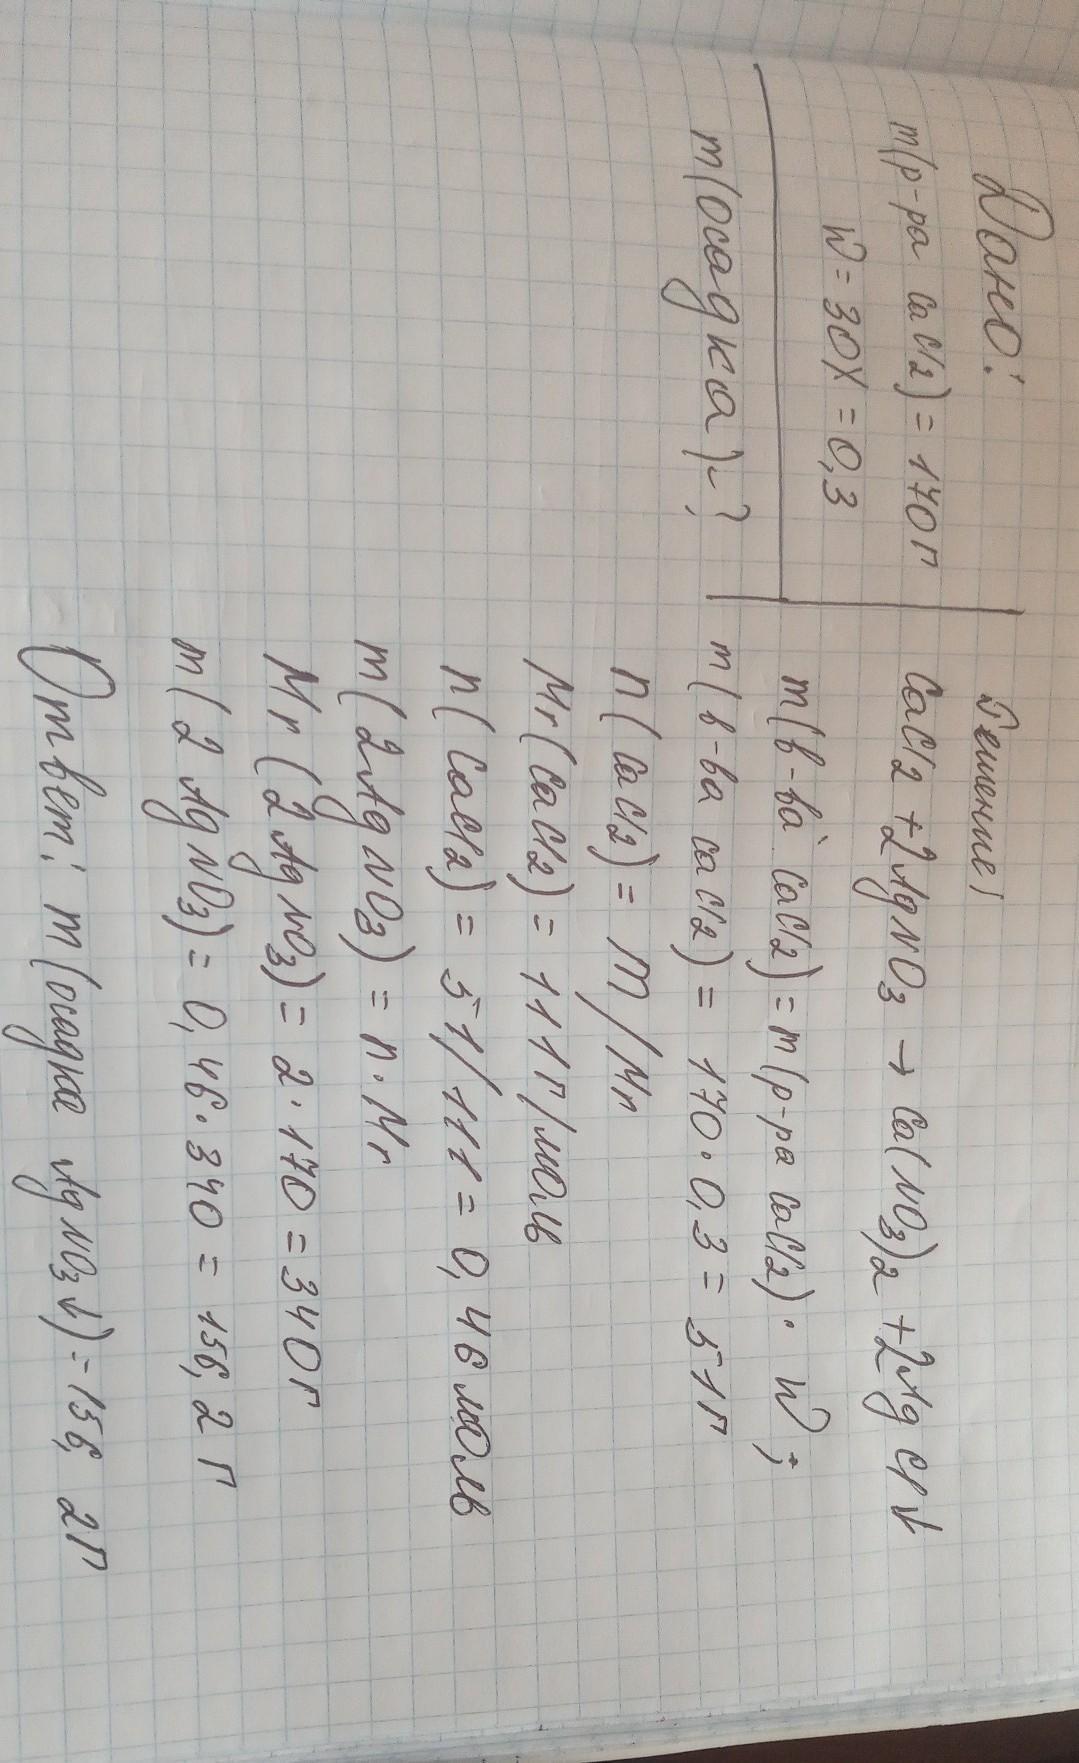 Дано:
m(р-ра CaCl2) = 170г
W = 30% = 0,3
m(осадка)-?
Решение:
CaCl2 + 2AgNO3 → Ca(NO3)2 + 2AgCl↓
m(в-ва CaCl2) = m(р-ра CaCl2) · W;
m(в-ва CaCl2) = 170 · 0,3 = 51г
n(CaCl2) = m/Mr
Mr(CaCl2) = 111г/моль
n(CaCl2) = 51/111 = 0,46 моль
m(2AgNO3) = n · Mr
Mr(2AgNO3) = 2 · 170 = 340г
m(2AgNO3) = 0,46 · 340 = 156,2г
Ответ: m(осадка AgNO3↓) = 156,2г